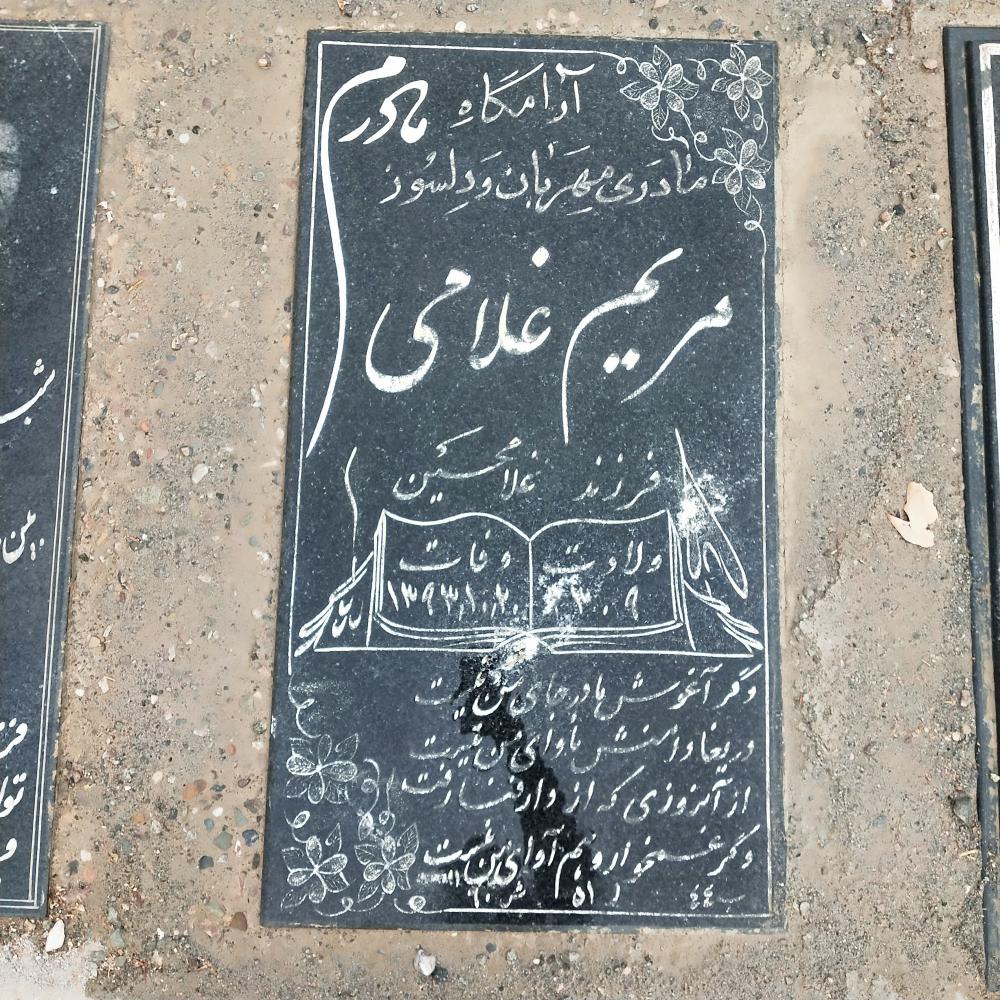 آرامگاه مادرم
مادری مهربان و دلسوز
مریم غلامی
فرزند غلامحسین
ولادت وفات
۱۳۹۳,۱۰,۲۰
دگر آغوش مادر جای من نیست
دریغا دامنش ماوای من نیست
از آنروزی که از دار فنا رفت
دگر غمخوار و هم آوای من نیست
ب ٤٤ ر ٥١ ش